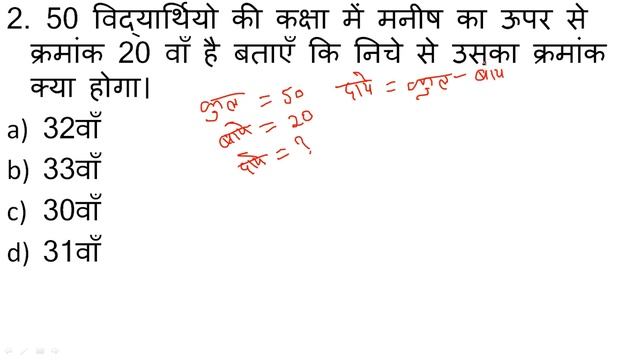 2. 50 विद्यार्थियो की कक्षा में मनीष का ऊपर से
क्रमांक 20 वाँ है बताएँ कि निचे से उसका क्रमांक
क्या होगा।
कुल = 50
बांये = 20
दांये = ?
दांये = कुल - बांये
a) 32वाँ
b) 33वाँ
c) 30वाँ
d) 31वाँ